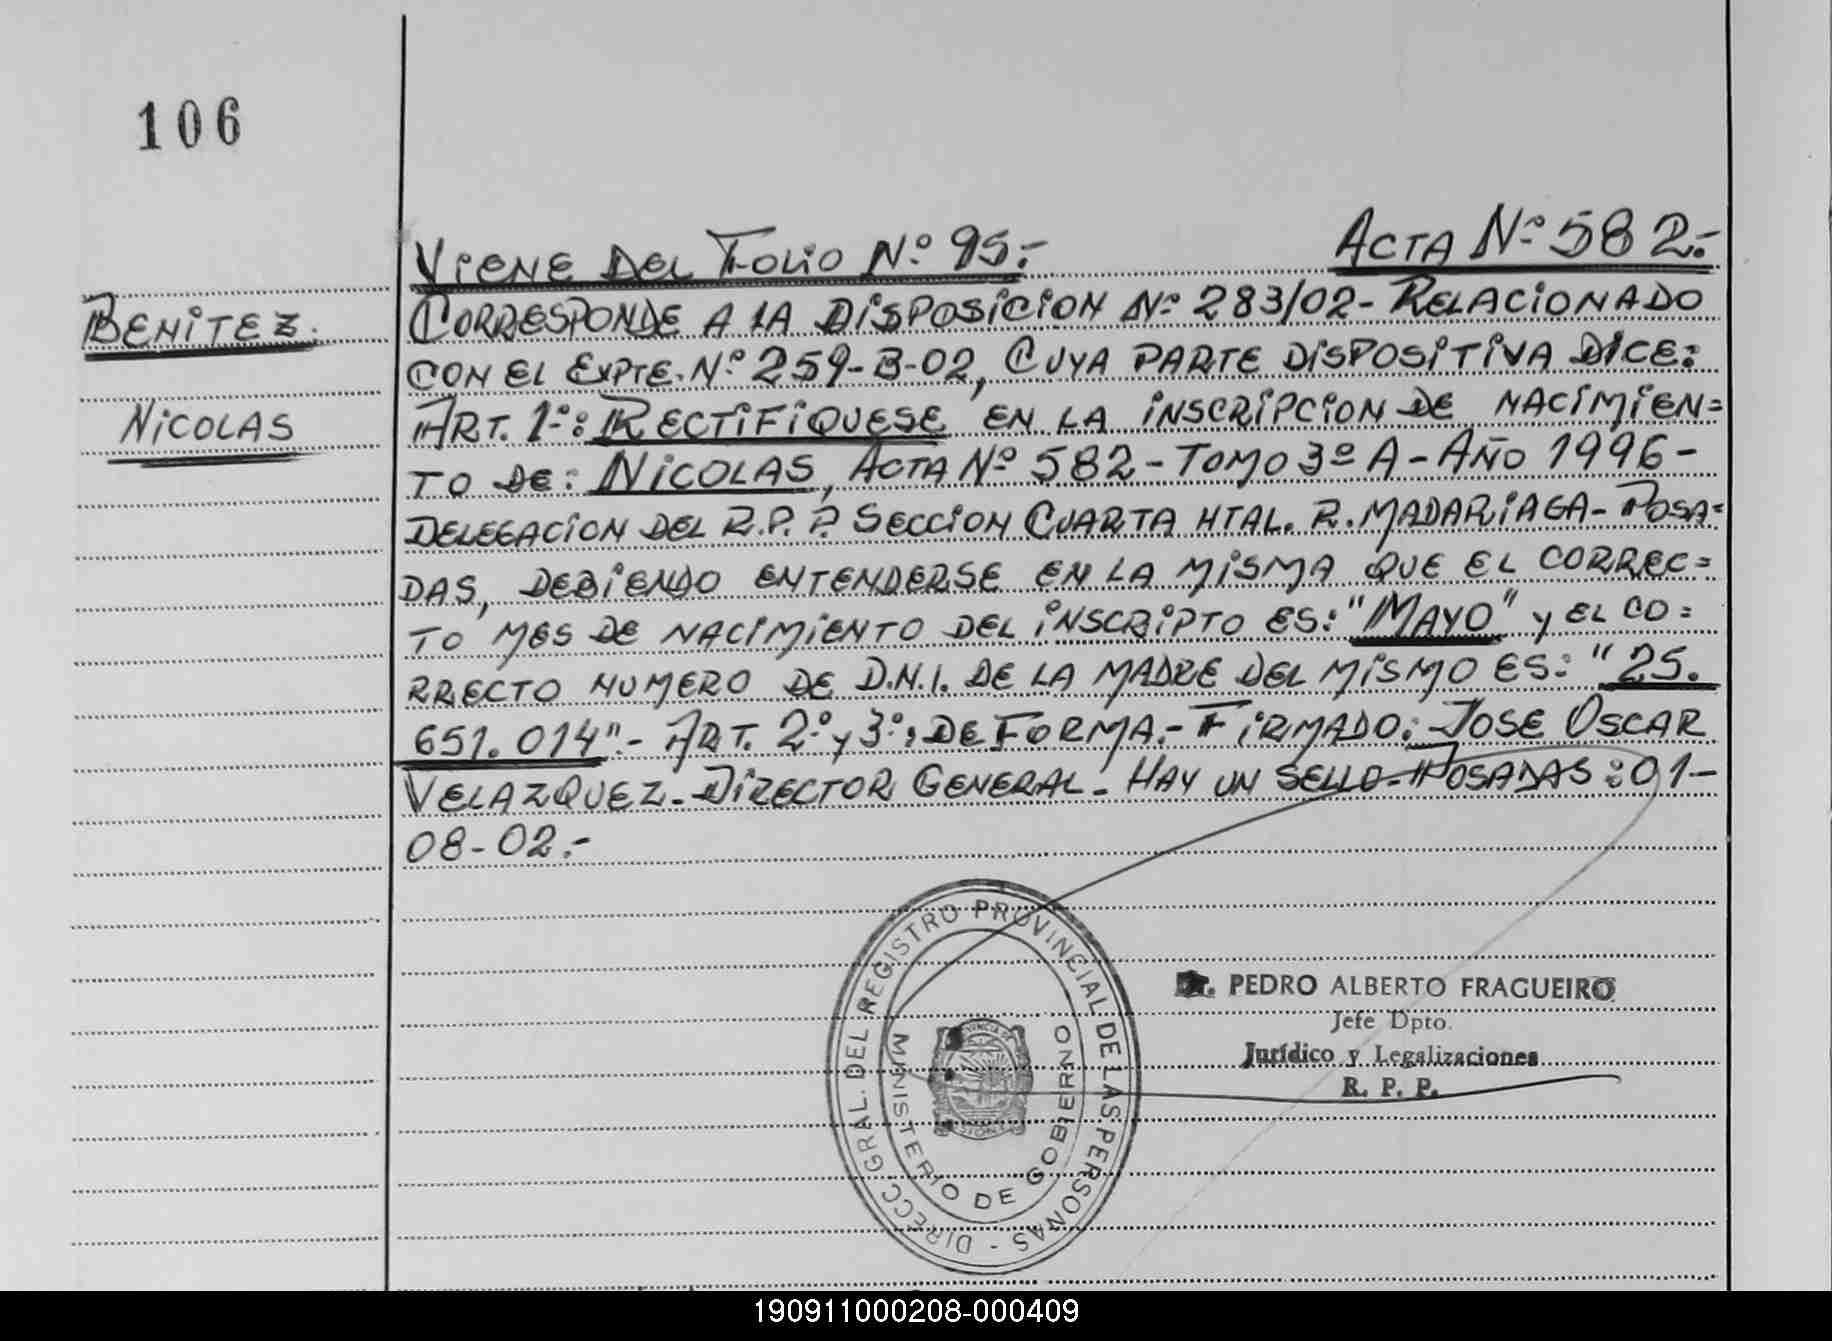 106
VIENE DEL FOLIO Nº 95.-
ACTA Nº 582.-
BENITEZ.
NICOLAS
CORRESPONDE A LA DISPOSICION Nº 283/02- RELACIONADO
CON EL EXPTE. Nº 259-B-02, CUYA PARTE DISPOSITIVA DICE:
ART. 1º: RECTIFIQUESE EN LA INSCRIPCION DE NACIMIEN=
TO DE: NICOLAS, ACTA Nº 582-TOMO 3º A-AÑO 1996-
DELEGACION DEL R.P.P. SECCION CUARTA HTAL. R. MADARIAGA-POSA=
DAS, DEBIENDO ENTENDERSE EN LA MISMA QUE EL CORREC=
TO MES DE NACIMIENTO DEL INSCRIPTO ES: "MAYO" y EL CO=
RRECTO NUMERO DE D.N.I. DE LA MADRE DEL MISMO ES: "25.
651.014".- ART. 2º y 3º, DE FORMA.- FIRMADO: JOSE OSCAR
VELAZQUEZ-DIRECTOR GENERAL-HAY UN SELLO-POSADAS: 01-
08-02.-
DIRECC GRAL. DEL REGISTRO PROVINCIAL DE LAS PERSONAS -
MINISTERIO DE GOBIERNO
PEDRO ALBERTO FRAGUEIRO
Jefe Dpto.
Jurídico y Legalizaciones
R. P. P.
190911000208-000409